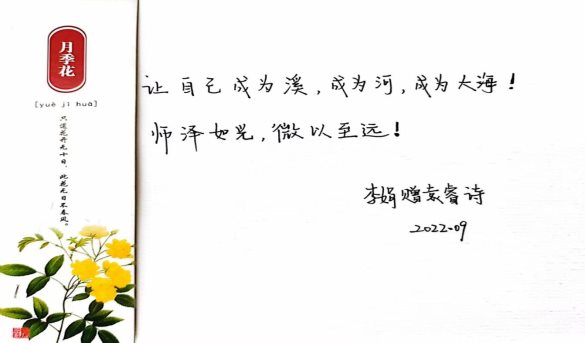 月季花
[yuè jì huā]
只道花开无十日，
此花无日不春风。
让自己成为溪，成为河，成为大海！
师泽如光，微以至远！
李娟赠袁睿诗
2022.09